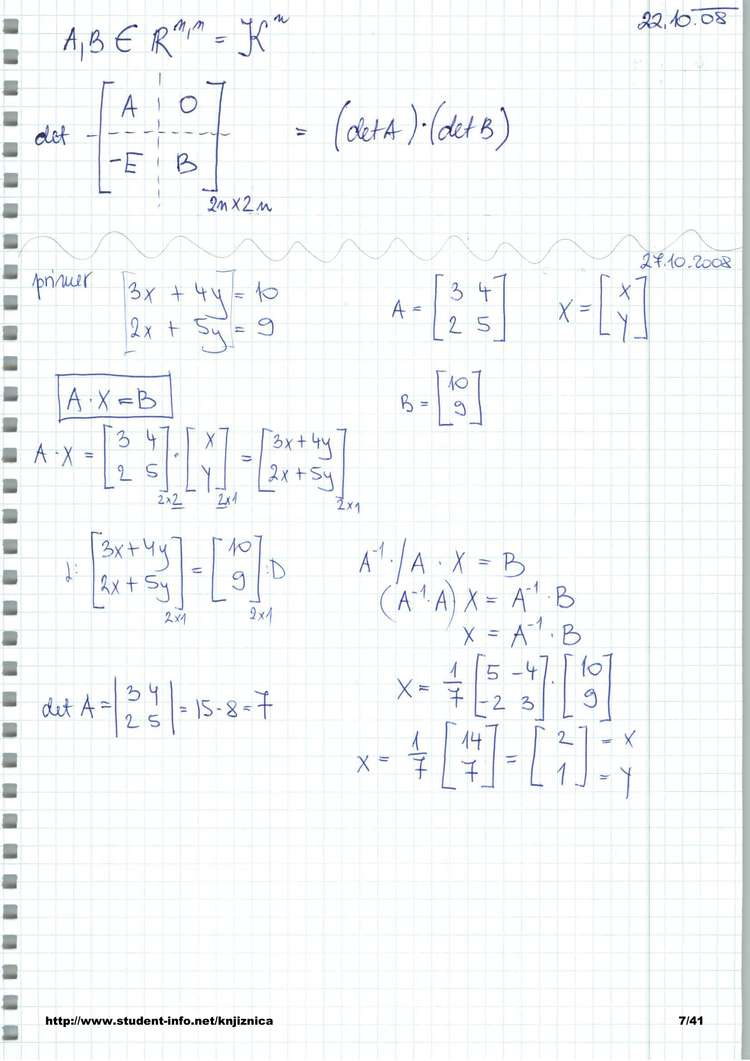 22.10.08
A,B ∈ ℝ^{n,n} = K^n
det [A 0; -E B]_{2n×2n} = (det A)·(det B)
27.10.2008
primer [3x + 4y = 10; 2x + 5y = 9] A = [3 4; 2 5] X = [x; y]
A·X = B B = [10; 9]
A·X = [3 4; 2 5]_{2×2} · [x; y]_{2×1} = [3x+4y; 2x+5y]_{2×1}
[3x+4y; 2x+5y]_{2×1} = [10; 9]_{2×1} :D
A^{-1}·/A · X = B
(A^{-1}·A) X = A^{-1}·B
X = A^{-1}·B
X = 1/7 [5 -4; -2 3] · [10; 9]
det A = |3 4; 2 5| = 15 - 8 = 7
X = 1/7 [14; 7] = [2; 1] = x = y
http://www.student-info.net/knjiznica 7/41